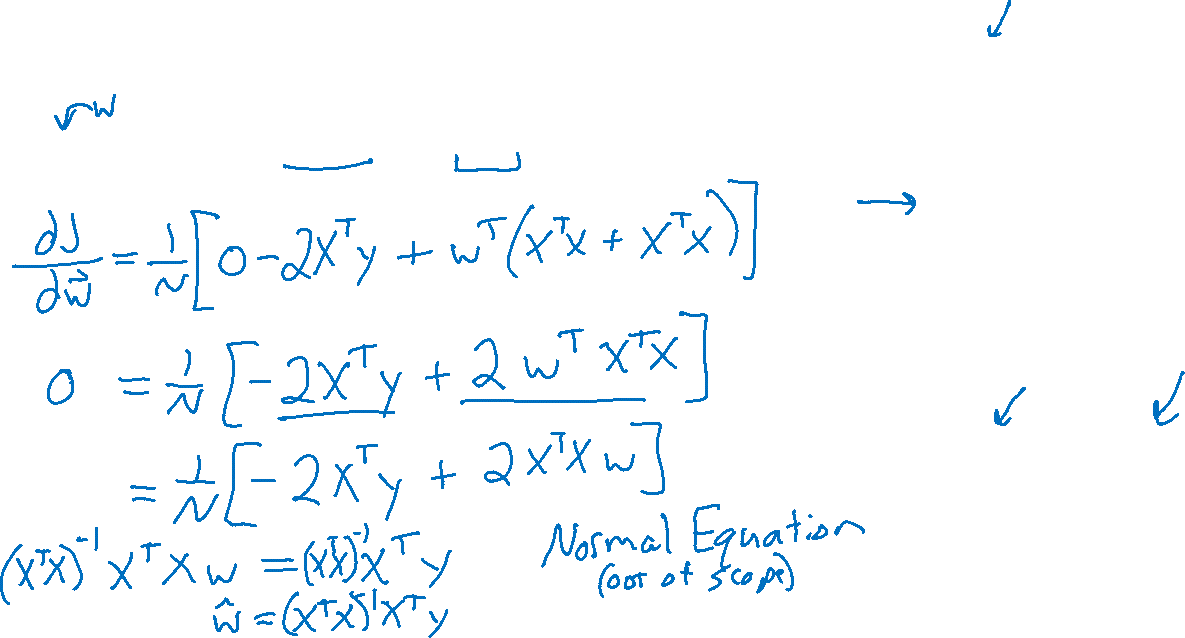 w
dJ/dw⃗ = 1/N [0 - 2Xᵀy + wᵀ(XᵀX + XᵀX)] →
0 = 1/N [-2Xᵀy + 2wᵀXᵀX]
= 1/N [-2Xᵀy + 2XᵀXw]
(XᵀX)⁻¹XᵀXw = (XᵀX)⁻¹Xᵀy
ŵ = (XᵀX)⁻¹Xᵀy
Normal Equation
(out of scope)